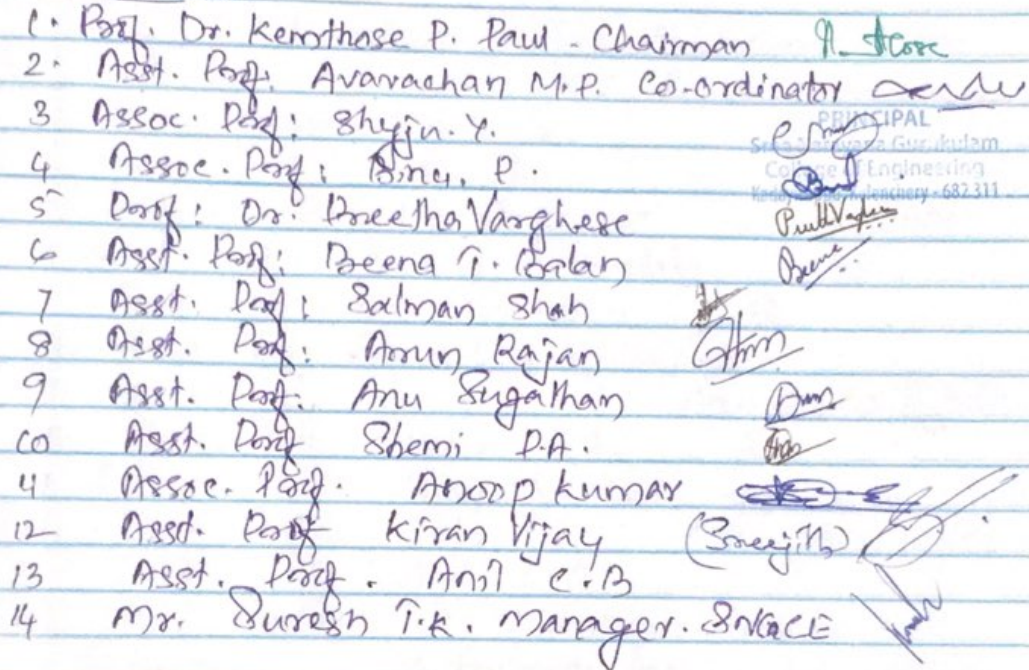 1. Prof. Dr. Kemthose P. Paul - Chairman
2. Asst. Prof. Avarachan M.P. Co-ordinator
3 Assoc. Prof: Shyju. Y.
4 Assoc. Prof: Binu. P.
5 Prof: Dr. Preetha Varghese
6 Asst. Prof: Beena T. Balan
7 Asst. Prof: Salman Shah
8 Asst. Prof: Arun Rajan
9 Asst. Prof. Anu Sugathan
10 Asst. Prof Shemi P.A.
11 Assoc. Prof. Anoop Kumar
12 Asst. Prof Kiran Vijay (Sreejith)
13 Asst. Prof. Anil C.B
14 Mr. Suresh T.K. Manager. SNGCE
PRINCIPAL
Gurukulam
College of Engineering
682 311